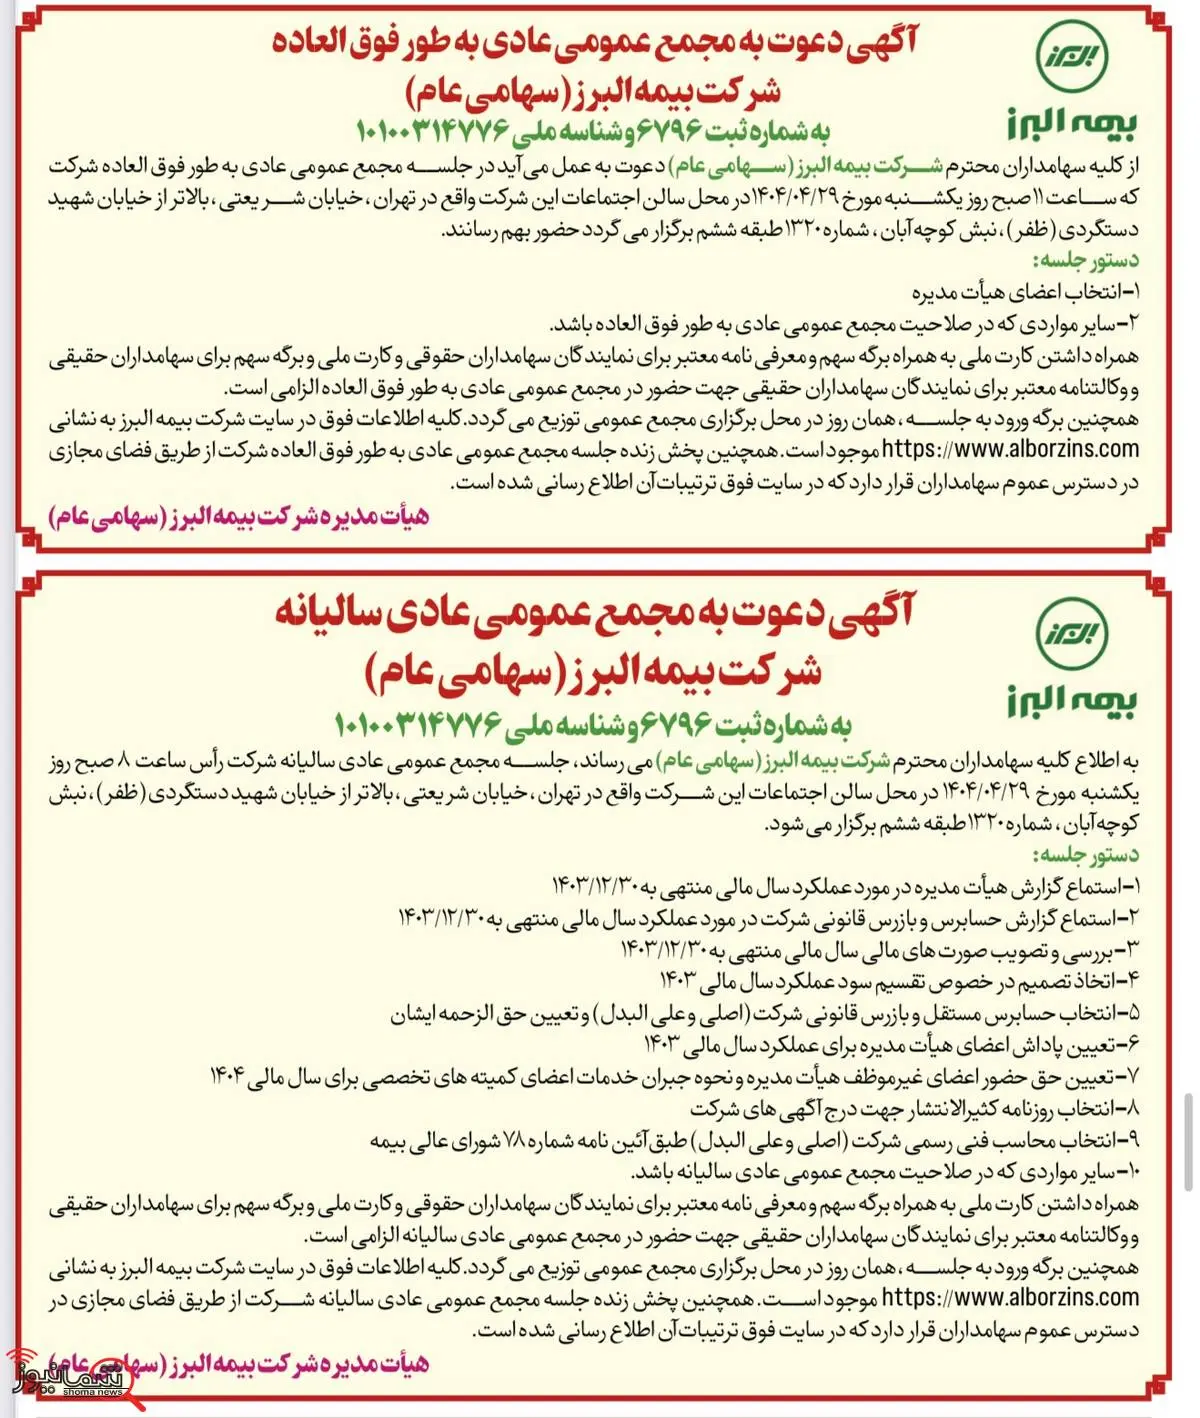 آگهی دعوت به مجمع عمومی عادی به طور فوق العاده
شرکت بیمه البرز (سهامی عام)
به شماره ثبت ۶۷۹۶ و شناسه ملی ۱۰۱۰۰۳۱۴۷۷۶
البرز
بیمه البرز
از کلیه سهامداران محترم شرکت بیمه البرز (سهامی عام) دعوت به عمل می آید در جلسه مجمع عمومی عادی به طور فوق العاده شرکت
که ساعت ۱۱ صبح روز یکشنبه مورخ ۱۴۰۴/۰۴/۲۹ در محل سالن اجتماعات این شرکت واقع در تهران، خیابان شریعتی، بالاتر از خیابان شهید
دستگردی (ظفر)، نبش کوچه آبان، شماره ۱۳۲۰ طبقه ششم برگزار می گردد حضور بهم رسانند.
دستور جلسه:
۱-انتخاب اعضای هیأت مدیره
۲-سایر مواردی که در صلاحیت مجمع عمومی عادی به طور فوق العاده باشد.
همراه داشتن کارت ملی به همراه برگه سهم و معرفی نامه معتبر برای نمایندگان سهامداران حقوقی و کارت ملی و برگه سهم برای سهامداران حقیقی
و وکالتنامه معتبر برای نمایندگان سهامداران حقیقی جهت حضور در مجمع عمومی عادی به طور فوق العاده الزامی است.
همچنین برگه ورود به جلسه، همان روز در محل برگزاری مجمع عمومی توزیع می گردد. کلیه اطلاعات فوق در سایت شرکت بیمه البرز به نشانی
https://www.alborzins.com موجود است. همچنین پخش زنده جلسه مجمع عمومی عادی به طور فوق العاده شرکت از طریق فضای مجازی
در دسترس عموم سهامداران قرار دارد که در سایت فوق ترتیبات آن اطلاع رسانی شده است.
هیأت مدیره شرکت بیمه البرز (سهامی عام)
آگهی دعوت به مجمع عمومی عادی سالیانه
شرکت بیمه البرز (سهامی عام)
به شماره ثبت ۶۷۹۶ و شناسه ملی ۱۰۱۰۰۳۱۴۷۷۶
البرز
بیمه البرز
به اطلاع کلیه سهامداران محترم شرکت بیمه البرز (سهامی عام) می رساند، جلسه مجمع عمومی عادی سالیانه شرکت رأس ساعت ۸ صبح روز
یکشنبه مورخ ۱۴۰۴/۰۴/۲۹ در محل سالن اجتماعات این شرکت واقع در تهران، خیابان شریعتی، بالاتر از خیابان شهید دستگردی (ظفر)، نبش
کوچه آبان، شماره ۱۳۲۰ طبقه ششم برگزار می شود.
دستور جلسه:
۱-استماع گزارش هیأت مدیره در مورد عملکرد سال مالی منتهی به ۱۴۰۳/۱۲/۳۰
۲-استماع گزارش حسابرس و بازرس قانونی شرکت در مورد عملکرد سال مالی منتهی به ۱۴۰۳/۱۲/۳۰
۳-بررسی و تصویب صورت های مالی سال مالی منتهی به ۱۴۰۳/۱۲/۳۰
۴-اتخاذ تصمیم در خصوص تقسیم سود عملکرد سال مالی ۱۴۰۳
۵-انتخاب حسابرس مستقل و بازرس قانونی شرکت (اصلی و علی البدل) و تعیین حق الزحمه ایشان
۶-تعیین پاداش اعضای هیأت مدیره برای عملکرد سال مالی ۱۴۰۳
۷-تعیین حق حضور اعضای غیرموظف هیأت مدیره و نحوه جبران خدمات اعضای کمیته های تخصصی برای سال مالی ۱۴۰۴
۸-انتخاب روزنامه کثیرالانتشار جهت درج آگهی های شرکت
۹-انتخاب محاسب فنی رسمی شرکت (اصلی و علی البدل) طبق آئین نامه شماره ۷۸ شورای عالی بیمه
۱۰-سایر مواردی که در صلاحیت مجمع عمومی عادی سالیانه باشد.
همراه داشتن کارت ملی به همراه برگه سهم و معرفی نامه معتبر برای نمایندگان سهامداران حقوقی و کارت ملی و برگه سهم برای سهامداران حقیقی
و وکالتنامه معتبر برای نمایندگان سهامداران حقیقی جهت حضور در مجمع عمومی عادی سالیانه الزامی است.
همچنین برگه ورود به جلسه، همان روز در محل برگزاری مجمع عمومی توزیع می گردد. کلیه اطلاعات فوق در سایت شرکت بیمه البرز به نشانی
https://www.alborzins.com موجود است. همچنین پخش زنده جلسه مجمع عمومی عادی سالیانه شرکت از طریق فضای مجازی در
دسترس عموم سهامداران قرار دارد که در سایت فوق ترتیبات آن اطلاع رسانی شده است.
هیأت مدیره شرکت بیمه البرز (سهامی عام)
شمانیوز
shoma news